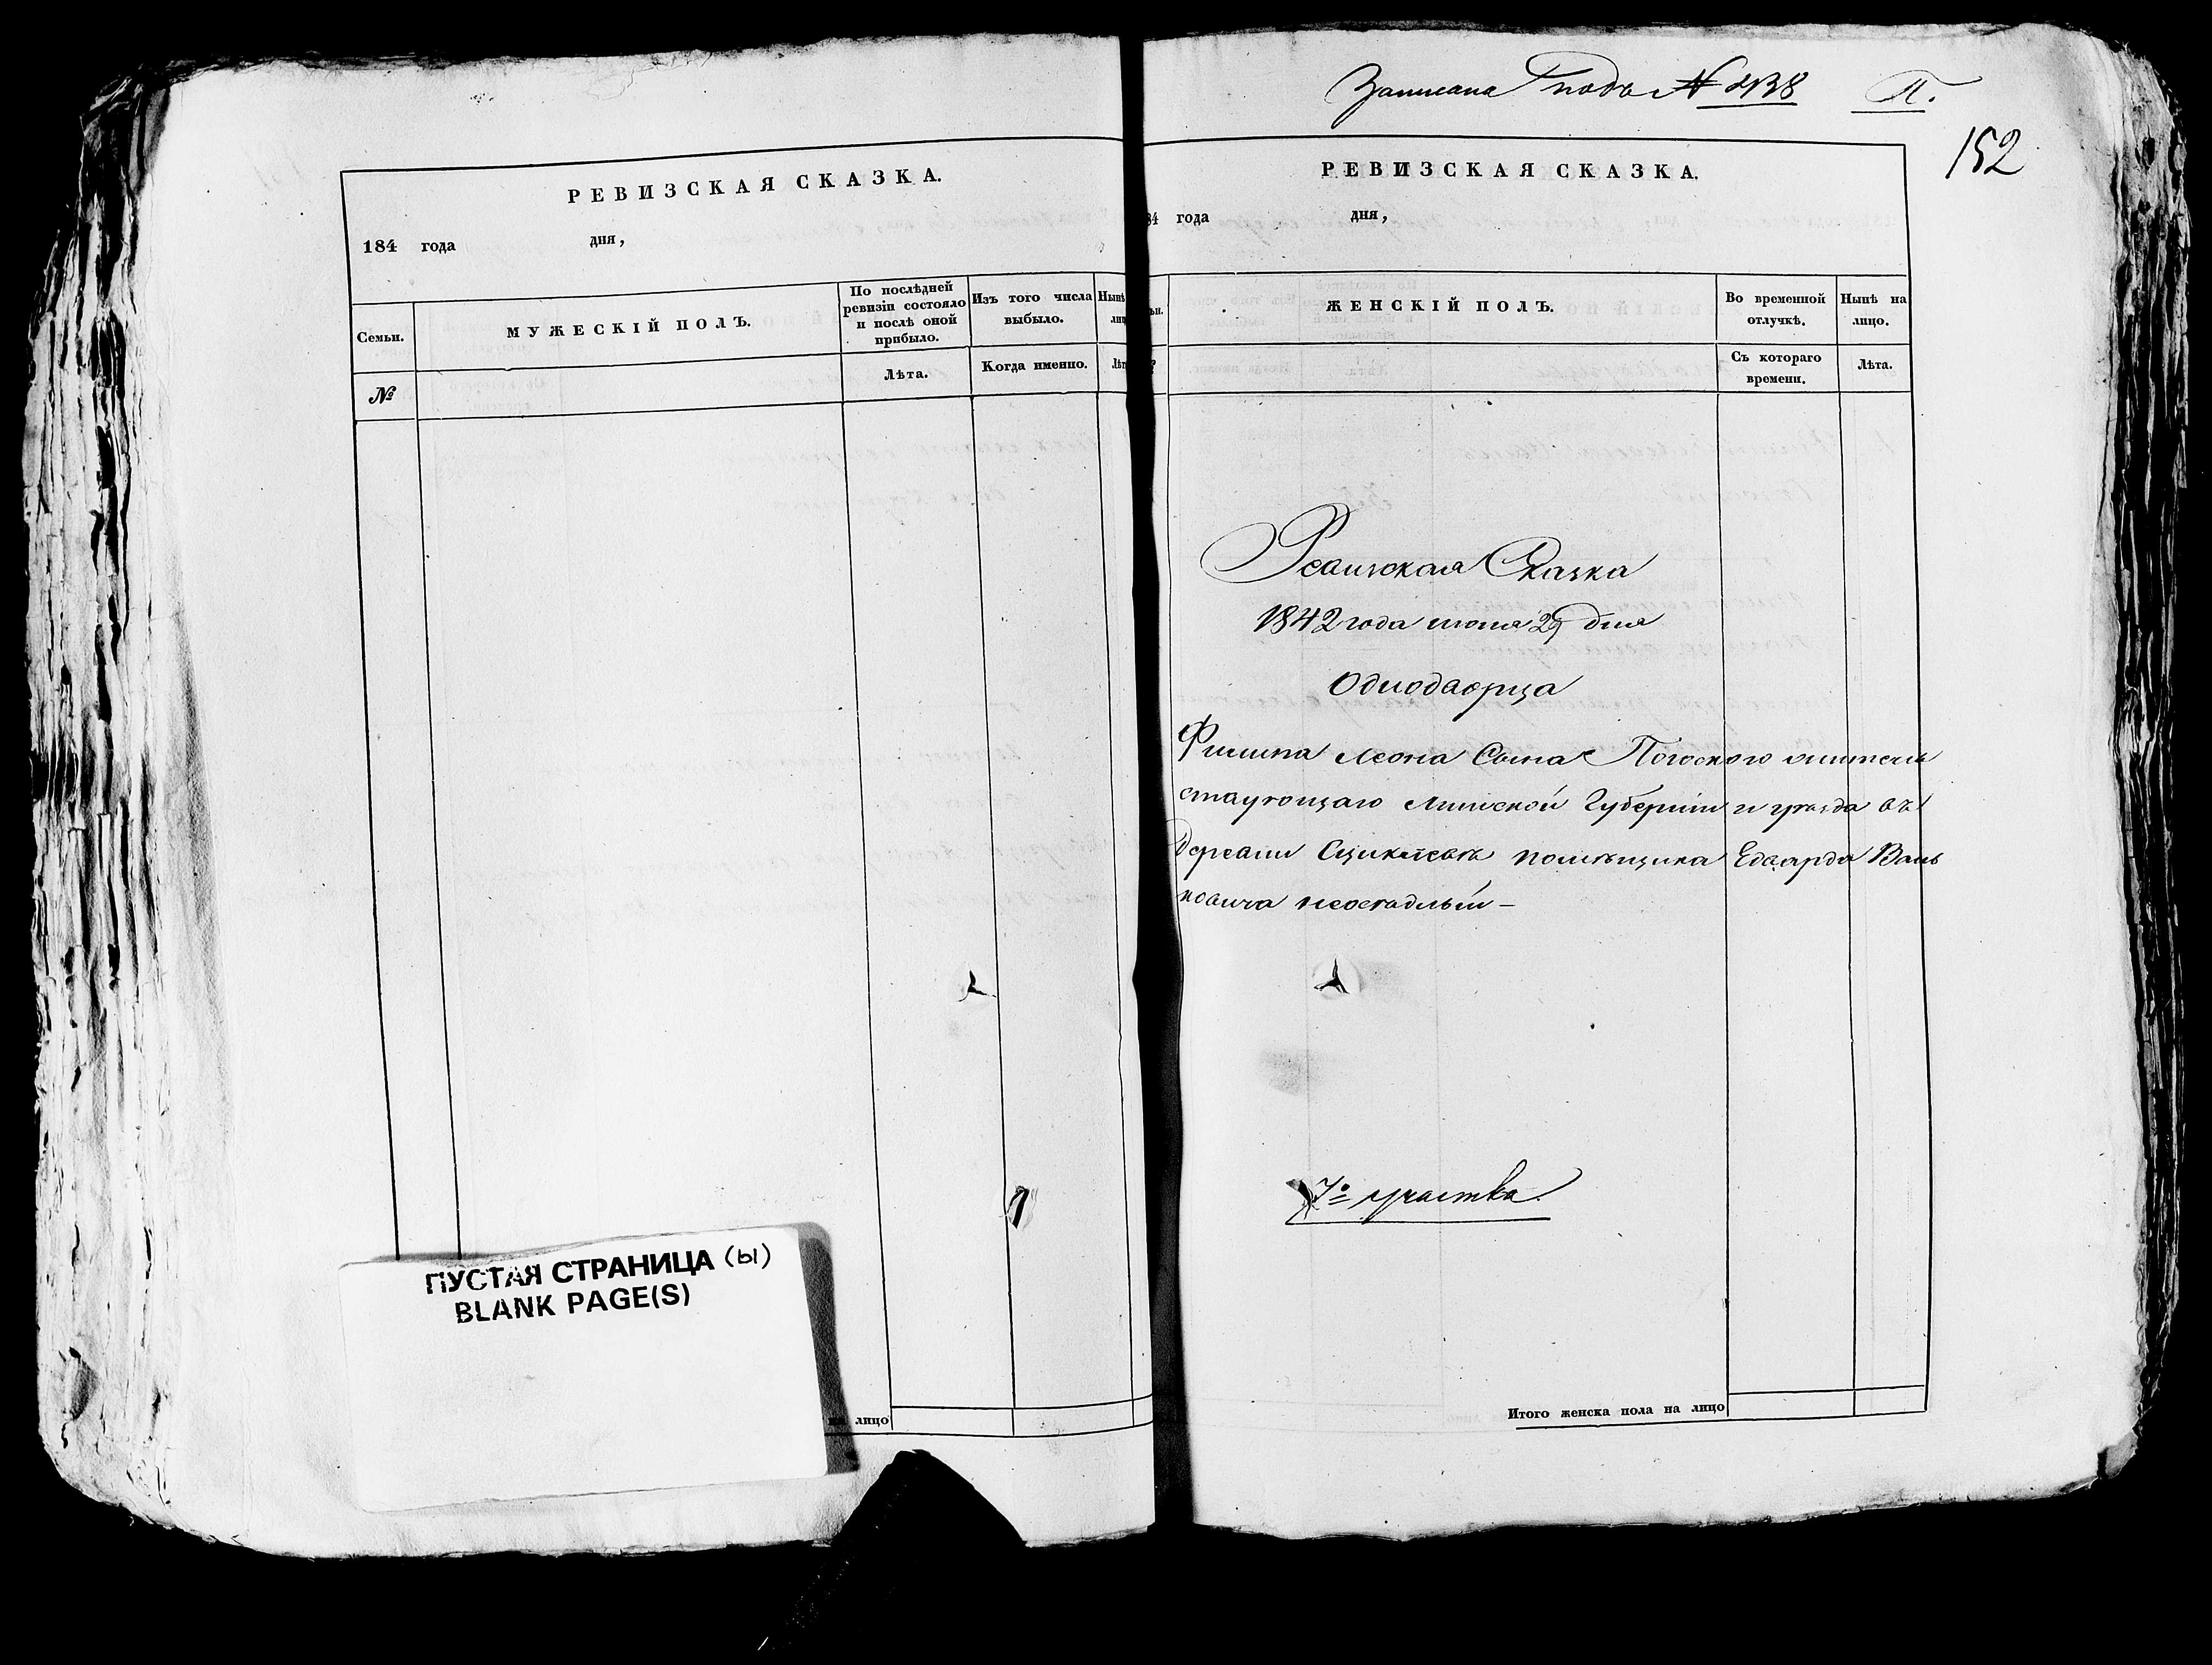 РЕВИЗСКАЯ СКАЗКА.
184 года дня,
Семьи.
МУЖЕСКІЙ ПОЛЪ.
По послѣдней ревизіи состояло и послѣ оной прибыло.
Изъ того числа выбыло.
Нынѣ
№
Лѣта.
Когда именно.
Лѣт
лицо
ПУСТАЯ СТРАНИЦА (ы)
BLANK PAGE(S)
Записана подъ №
П.
152
РЕВИЗСКАЯ СКАЗКА.
84 года дня,
ЖЕНСКІЙ ПОЛЪ.
Во временной отлучкѣ.
Нынѣ на лицо.
Съ котораго времени.
Лѣта.
Ревизская Сказка
1842 года июня 29 дня
Однодворца
Филипа Леона Сына Погоского жительс
ствующаго Минской Губерніи и уезда въ
Деревни помѣщика Едварда Вань
ковича неоседлый —
7о участка.
Итого женска пола на лицо